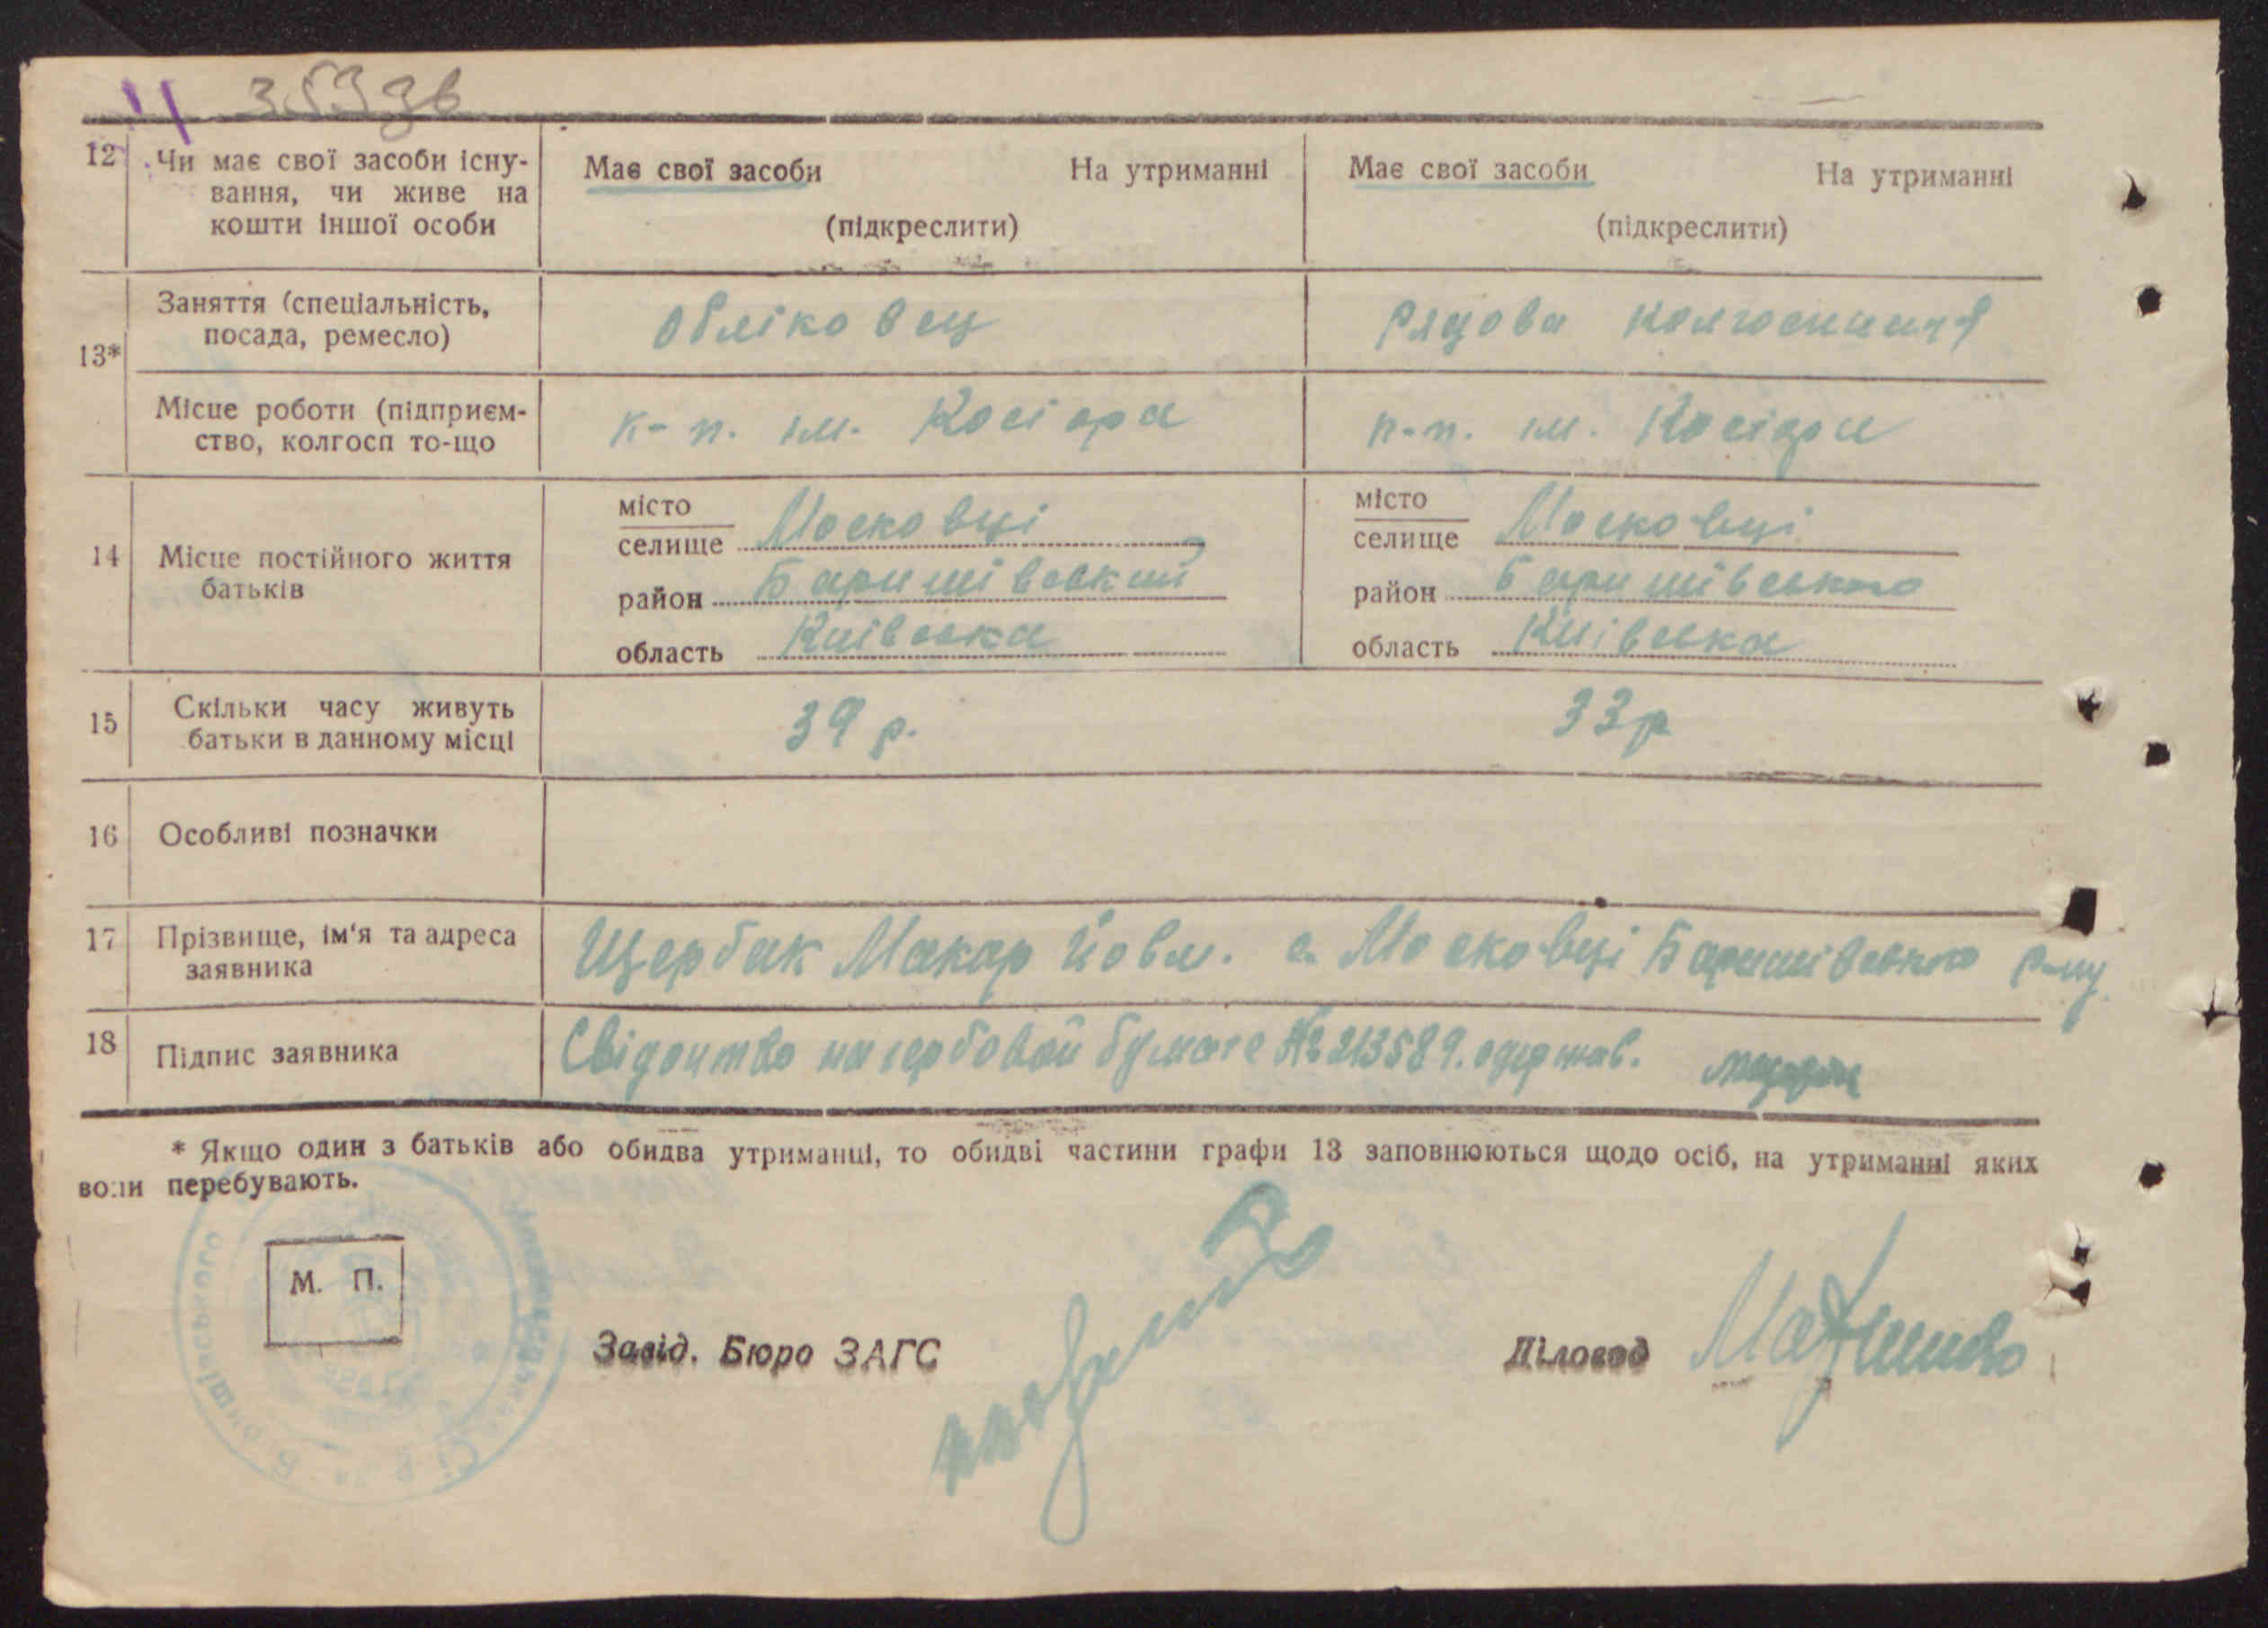 35936
12 Чи має свої засоби існу- Має свої засоби На утриманні Має свої засоби На утриманні
вання, чи живе на
кошти іншої особи (підкреслити) (підкреслити)
Заняття (спеціальність, обліковец рядова колгоспниця
посада, ремесло)
13*
Місце роботи (підприєм- к-п. ім. Косіора к-п. ім. Косіора
ство, колгосп то-що
місто місто
селище Московці селище Московці
14 Місце постійного життя
батьків
район Баришівський район Баришівського
область Київська область Київська
15 Скільки часу живуть 39 р. 33 р
батьки в данному місці
16 Особливі позначки
17 Прізвище, ім'я та адреса Щербак Макар Йовм. с. Московці Баришівського р-ну
заявника
18 Підпис заявника Свідоцтво на гербовой бумаге № 213589. одержав.
* Якщо один з батьків або обидва утриманці, то обидві частини графи 13 заповнюються щодо осіб, на утриманні яких
вони перебувають.
М. П.
Завід. Бюро ЗАГС Діловод